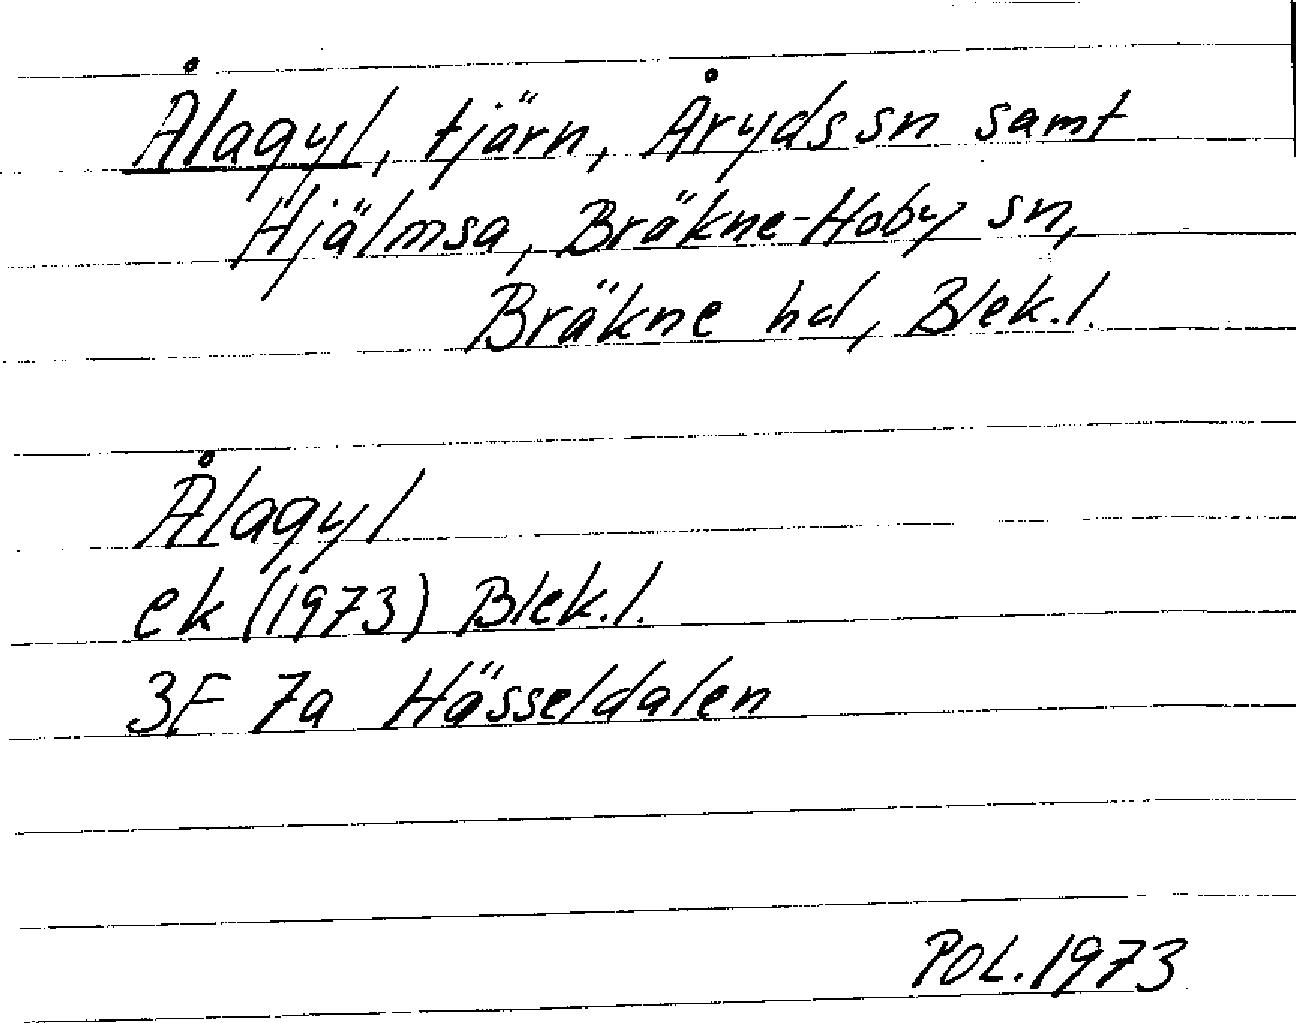 Ålagyl, tjärn, Åryds sn samt
Hjälmsa, Bräkne-Hoby sn,
Bräkne hd, Blek.l.
Ålagyl
ek (1973) Blek.l.
3F 7a Hässeldalen
POL. 1973